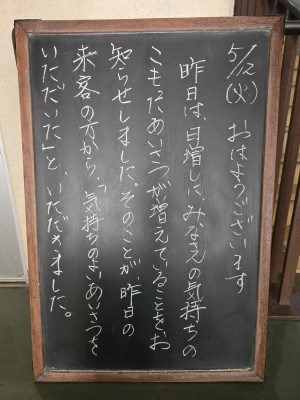 5/12(火) おはようございます
昨日は、日増しに、みなさんの気持ちの
こもったあいさつが増えていることをお
知らせしました。そのことが、昨日の
来客の方から、「気持ちのよいあいさつを
いただいた」と、いただきました。